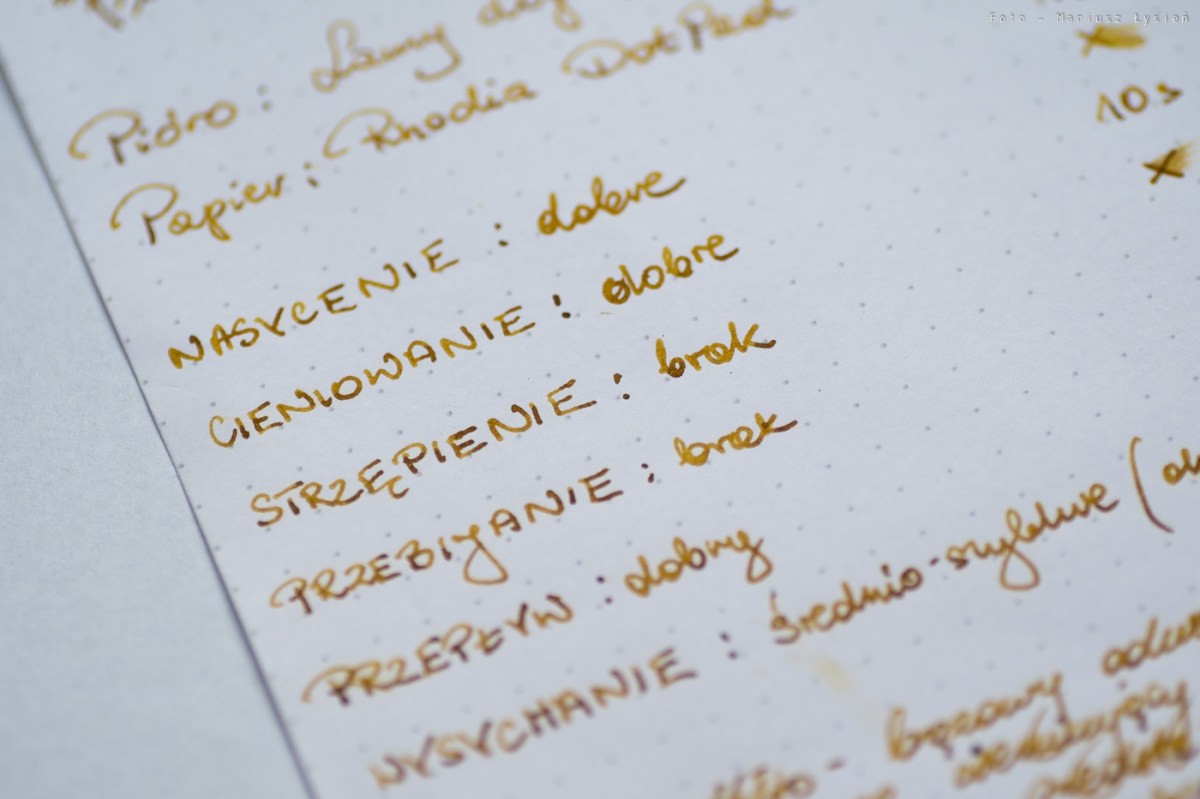 Foto - Mariusz Łysień
Pióro : Lamy
Papier : Rhodia DotPad
10 s
NASYCENIE : dobre
CIENIOWANIE : dobre
STRZĘPIENIE : brak
PRZEBIJANIE : brak
PRZEPŁYW : dobry
WYSYCHANIE : średnio-szybkie (
brązowy